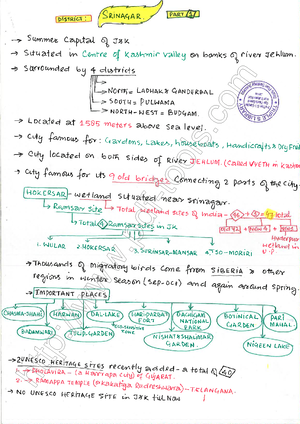 DISTRICT: SRINAGAR PART 21
→ Summer Capital of J&K
→ Situated in Centre of Kashmir Valley on banks of river Jehlum.
→ Surrounded by 4 districts
→ NORTH = LADHAK & GANDERBAL
→ SOUTH = PULWAMA
→ NORTH-WEST = BUDGAM.
→ Located at 1585 meters above sea level.
→ City famous for: Gardens, Lakes, houseboats, Handicrafts & Dry Fruits
→ City located on both sides of River JEHLUM. (Called VYETH in Kashmir)
→ City famous for its 9 old bridges connecting 2 parts of the city.
HOKERSAR - wetland situated near Srinagar.
→ Ramsar Site → Total wetland sites of India =
47 total
→ Total 4 Ramsar sites in J&K
Haiderpur Wetland in U.P
1. WULAR 2. HOKERSAR 3. SURINSAR-MANSAR 4. TSO-MORIRI
→ Thousands of migratory birds come from SIBERIA & other
regions in winter season (SEP-OCT) and again around spring.
→ IMPORTANT PLACES
CHASMA-SHAHI HARWAN DAL-LAKE HARI-PARBAT FORT DACHIGAM NATIONAL PARK BOTINICAL GARDEN PARI MAHAL
BADAMWARI TULIP GARDEN NISHAT & SHALIMAR GARDEN NIGEEN LAKE
→ 2 UNESCO HERITAGE SITES recently added - a total of 40
1. → DHOLAVIRA - (a Harrapa City) of GUJARAT.
2. → RAMAPPA TEMPLE (@Kakatiya Rudreshwara) - TELANGANA.
→ NO UNESCO HERITAGE SITE IN J&K till NOW